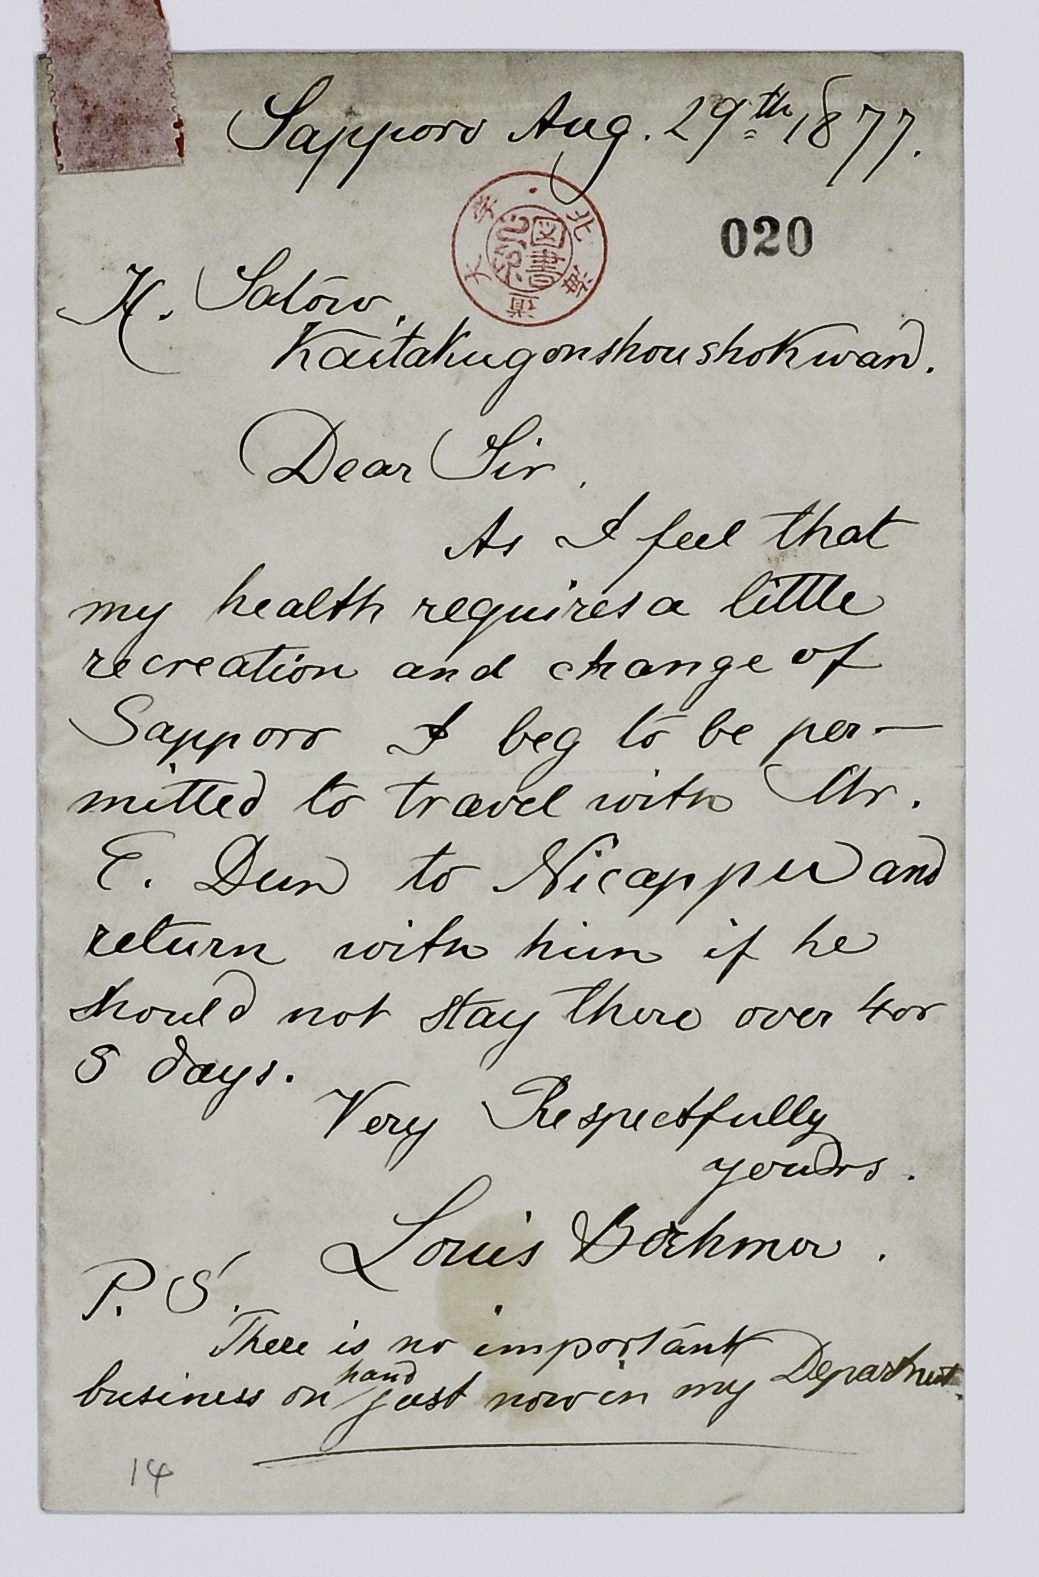 Sapporo Aug. 29th 1877.
020
北海道大學
圖書
H. Satow.
Kaitakugonshoushokwan.
Dear Sir.
As I feel that
my health requires a little
recreation and change of
Sapporo I beg to be per-
mitted to travel with Mr.
E. Dun to Nicappu and
return with him if he
should not stay there over 4 or
5 days.
Very Respectfully
yours.
Louis Boehmer.
P. S.
There is no important
business on hand just now in my Departmt.
14